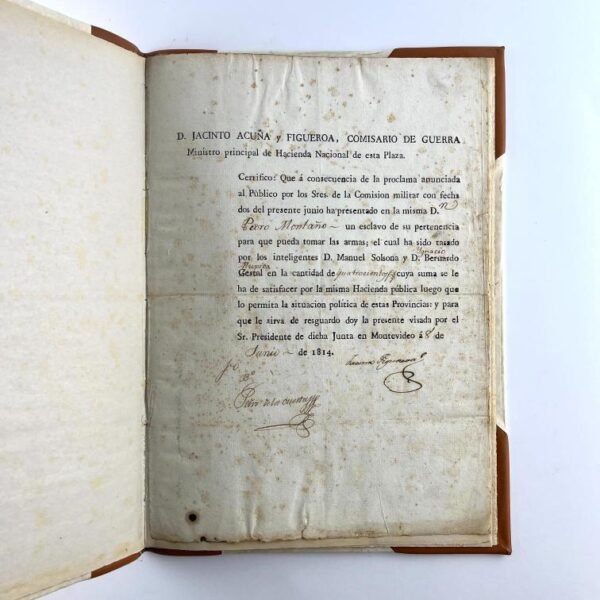 D. JACINTO ACUÑA y FIGUEROA, COMISARIO DE GUERRA
Ministro principal de Hacienda Nacional de esta Plaza.
Certifico: Que á consecuencia de la proclama anunciada
al Público por los Sres. de la Comision militar con fecha
dos del presente junio ha presentado en la misma D.n
Pedro Montaño un esclavo de su pertenencia
para que pueda tomar las armas; el cual ha sido tasado
Ignacio
por los inteligentes D. Manuel Solsona y D. Bernardo
Gestal en la cantidad de quatrocientos cuya suma se le
ha de satisfacer por la misma Hacienda pública luego que
lo permita la situacion politica de estas Provincias: y para
que le sirva de resguardo doy la presente visada por el
Sr. Presidente de dicha Junta en Montevideo á 8 de
Junio de 1814.
Jacinto Figueroa
Bo
Pedro de la Cuesta